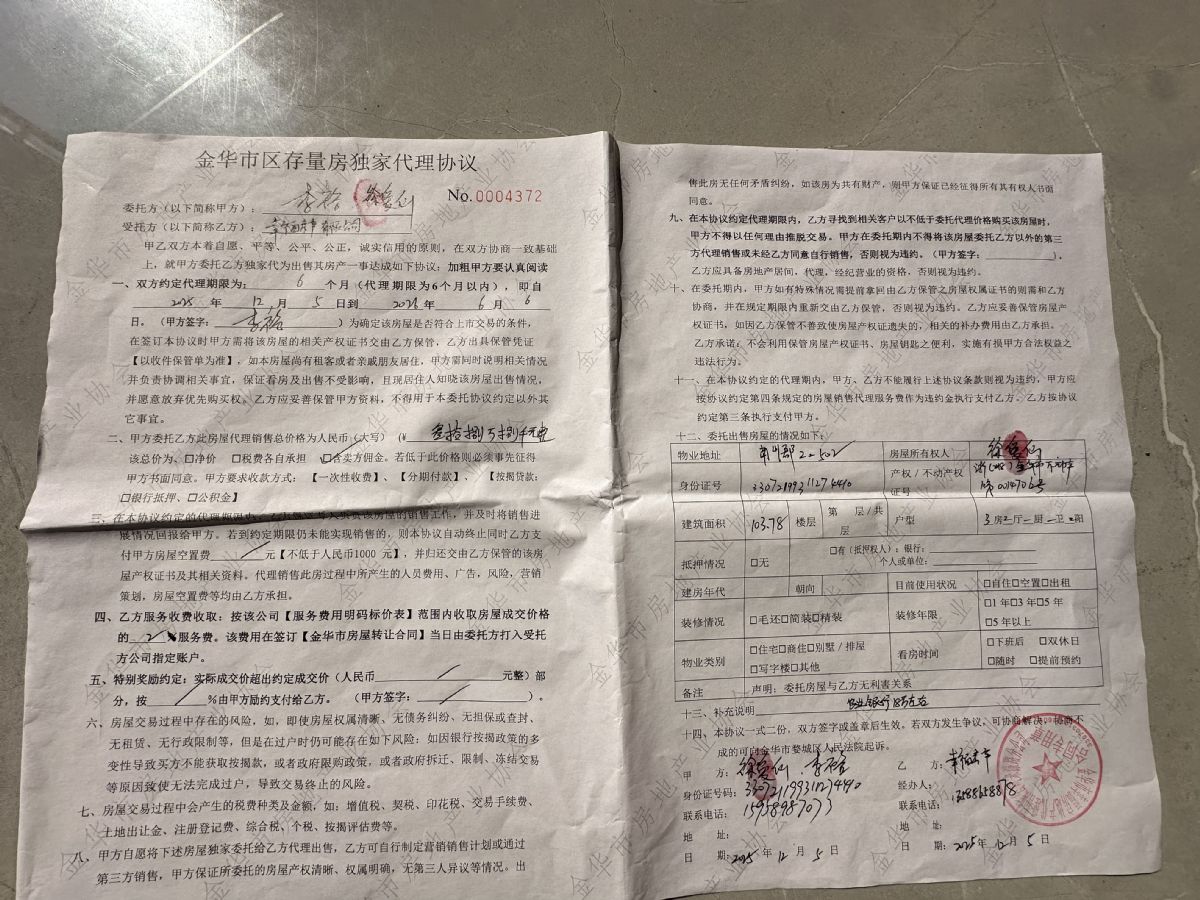 金华市区存量房独家代理协议
No.0004372
委托方(以下简称甲方):
受托方(以下简称乙方):
甲乙双方本着自愿、平等、公平、公正,诚实信用的原则,在双方协商一致基础
上,就甲方委托乙方独家代为出售其房产一事达成如下协议:加粗甲方要认真阅读
一、双方约定代理期限为: 6 个月(代理期限为6个月以内),即自
2025 年 12 月 5 日到 2026 年 6 月 6
日。(甲方签字: )为确定该房屋是否符合上市交易的条件,
在签订本协议时甲方需将该房屋的相关产权证书交由乙方保管,乙方出具保管凭证
【以收件保管单为准】,如本房屋尚有租客或者亲戚朋友居住,甲方需同时说明相关情况
并负责协调相关事宜,保证看房及出售不受影响,且现居住人知晓该房屋出售情况,
并愿意放弃优先购买权。乙方应妥善保管甲方资料,不得用于本委托协议约定以外其
它事宜。
二、甲方委托乙方此房屋代理销售总价格为人民币(大写)(¥ 叁拾捌万捌仟元
该总价为、□净价 □税费各自承担 □含卖方佣金。若低于此价格则必须事先征得
甲方书面同意。甲方要求收款方式:【一次性收费】、【分期付款】、【按揭贷款:
□银行抵押、□公积金】
三、在本协议约定的代理期限内,乙方
该房屋的销售工作,并及时将销售进
展情况回报给甲方。若到约定期限仍未能实现销售的,则本协议自动终止同时乙方支
付甲方房屋空置费 元【不低于人民币1000 元】,并归还交由乙方保管的该房
屋产权证书及其相关资料。代理销售此房过程中所产生的人员费用、广告,风险,营销
策划,房屋空置费等均由乙方承担。
四、乙方服务收费收取:按该公司【服务费用明码标价表】范围内收取房屋成交价格
的 2 %服务费。该费用在签订【金华市房屋转让合同】当日由委托方打入受托
方公司指定账户。
五、特别奖励约定:实际成交价超出约定成交价(人民币 元整)部
分,按 %由甲方励约支付给乙方。 (甲方签字: )。
六、房屋交易过程中存在的风险,如,即使房屋权属清晰、无债务纠纷、无担保或查封、
无租赁、无行政限制等,但是在过户时仍可能存在如下风险:如因银行按揭政策的多
变性导致买方不能获取按揭款,或者政府限购政策,或者政府拆迁、限制、冻结交易
等原因致使无法完成过户,导致交易终止的风险。
七、房屋交易过程中会产生的税费种类及金额,如:增值税、契税、印花税、交易手续费、
土地出让金、注册登记费、综合税、个税、按揭评估费等。
八、甲方自愿将下述房屋独家委托给乙方代理出售,乙方可自行制定营销销售计划或通过
第三方销售,甲方保证所委托的房屋产权清晰、权属明确,无第三人异议等情况。出
售此房无任何矛盾纠纷,如该房为共有财产,则甲方保证已经征得所有其有权人书面
同意。
九、在本协议约定代理期限内,乙方寻找到相关客户以不低于委托代理价格购买该房屋时,
甲方不得以任何理由推脱交易。甲方在委托期内不得将该房屋委托乙方以外的第三
方代理销售或未经乙方同意自行销售,否则视为违约。(甲方签字: )。
乙方应具备房地产居间,代理,经纪营业的资格,否则视为违约。
十、在委托期内,甲方如有特殊情况需提前拿回由乙方保管之房屋权属证书的则需和乙方
协商,并在规定期限内重新交由乙方保管,否则视为违约。乙方应妥善保管房屋产
权证书,如因乙方保管不善致使房屋产权证遗失的,相关的补办费用由乙方承担。
乙方承诺:不会利用保管房屋产权证书、房屋钥匙之便利,实施有损甲方合法权益之
违法行为。
十一、在本协议约定的代理期内,甲方、乙方不能履行上述协议条款则视为违约,甲方应
按协议约定第四条规定的房屋销售代理服务费作为违约金执行支付乙方。乙方按协议
约定第三条执行支付甲方。
十二、委托出售房屋的情况如下:
物业地址 2-502 房屋所有权人
身份证号 33072199311274410 产权/不动产权
证号 第0014706号
建筑面积 103.78 楼层 第 层/共
层 户型 3房2厅一厨一卫2阳
抵押情况 □无 □有(抵押权人):银行:
个人或单位:
建房年代 朝向 目前使用状况 □自住□空置□出租
装修情况 □毛还□简装□精装 装修年限 □1年□3年□5年
□5年以上
物业类别 □住宅□商住□别墅/排屋
□写字楼□其他 看房时间 □下班后 □双休日
□随时 □提前预约
备注 声明:委托房屋与乙方无利害关系
十三、补充说明
十四、本协议一式二份,双方签字或盖章后生效。若双方发生争议,可协商解决,协商不
成的可向金华市婺城区人民法院起诉。
甲 方: 乙 方:
身份证号码: 经办人:
联系电话: 15958987073 联系电话:
地 址: 地 址:
日 期: 2025 年 12 月 5 日 日 期: 2025 年 12 月 5 日